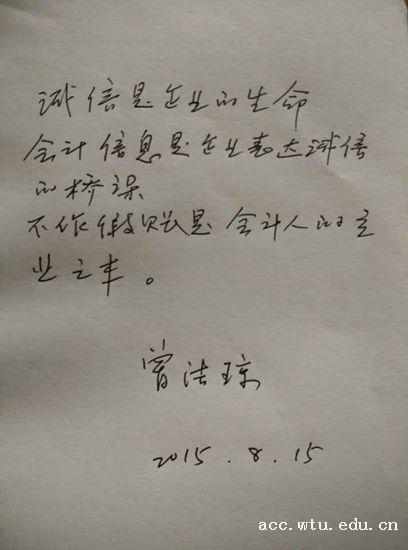 诚信是企业的生命
会计信息是企业表达诚信
的桥梁
不作假账是会计人的立
业之本。
曾洁琼
2015.8.15
acc.wtu.edu.cn